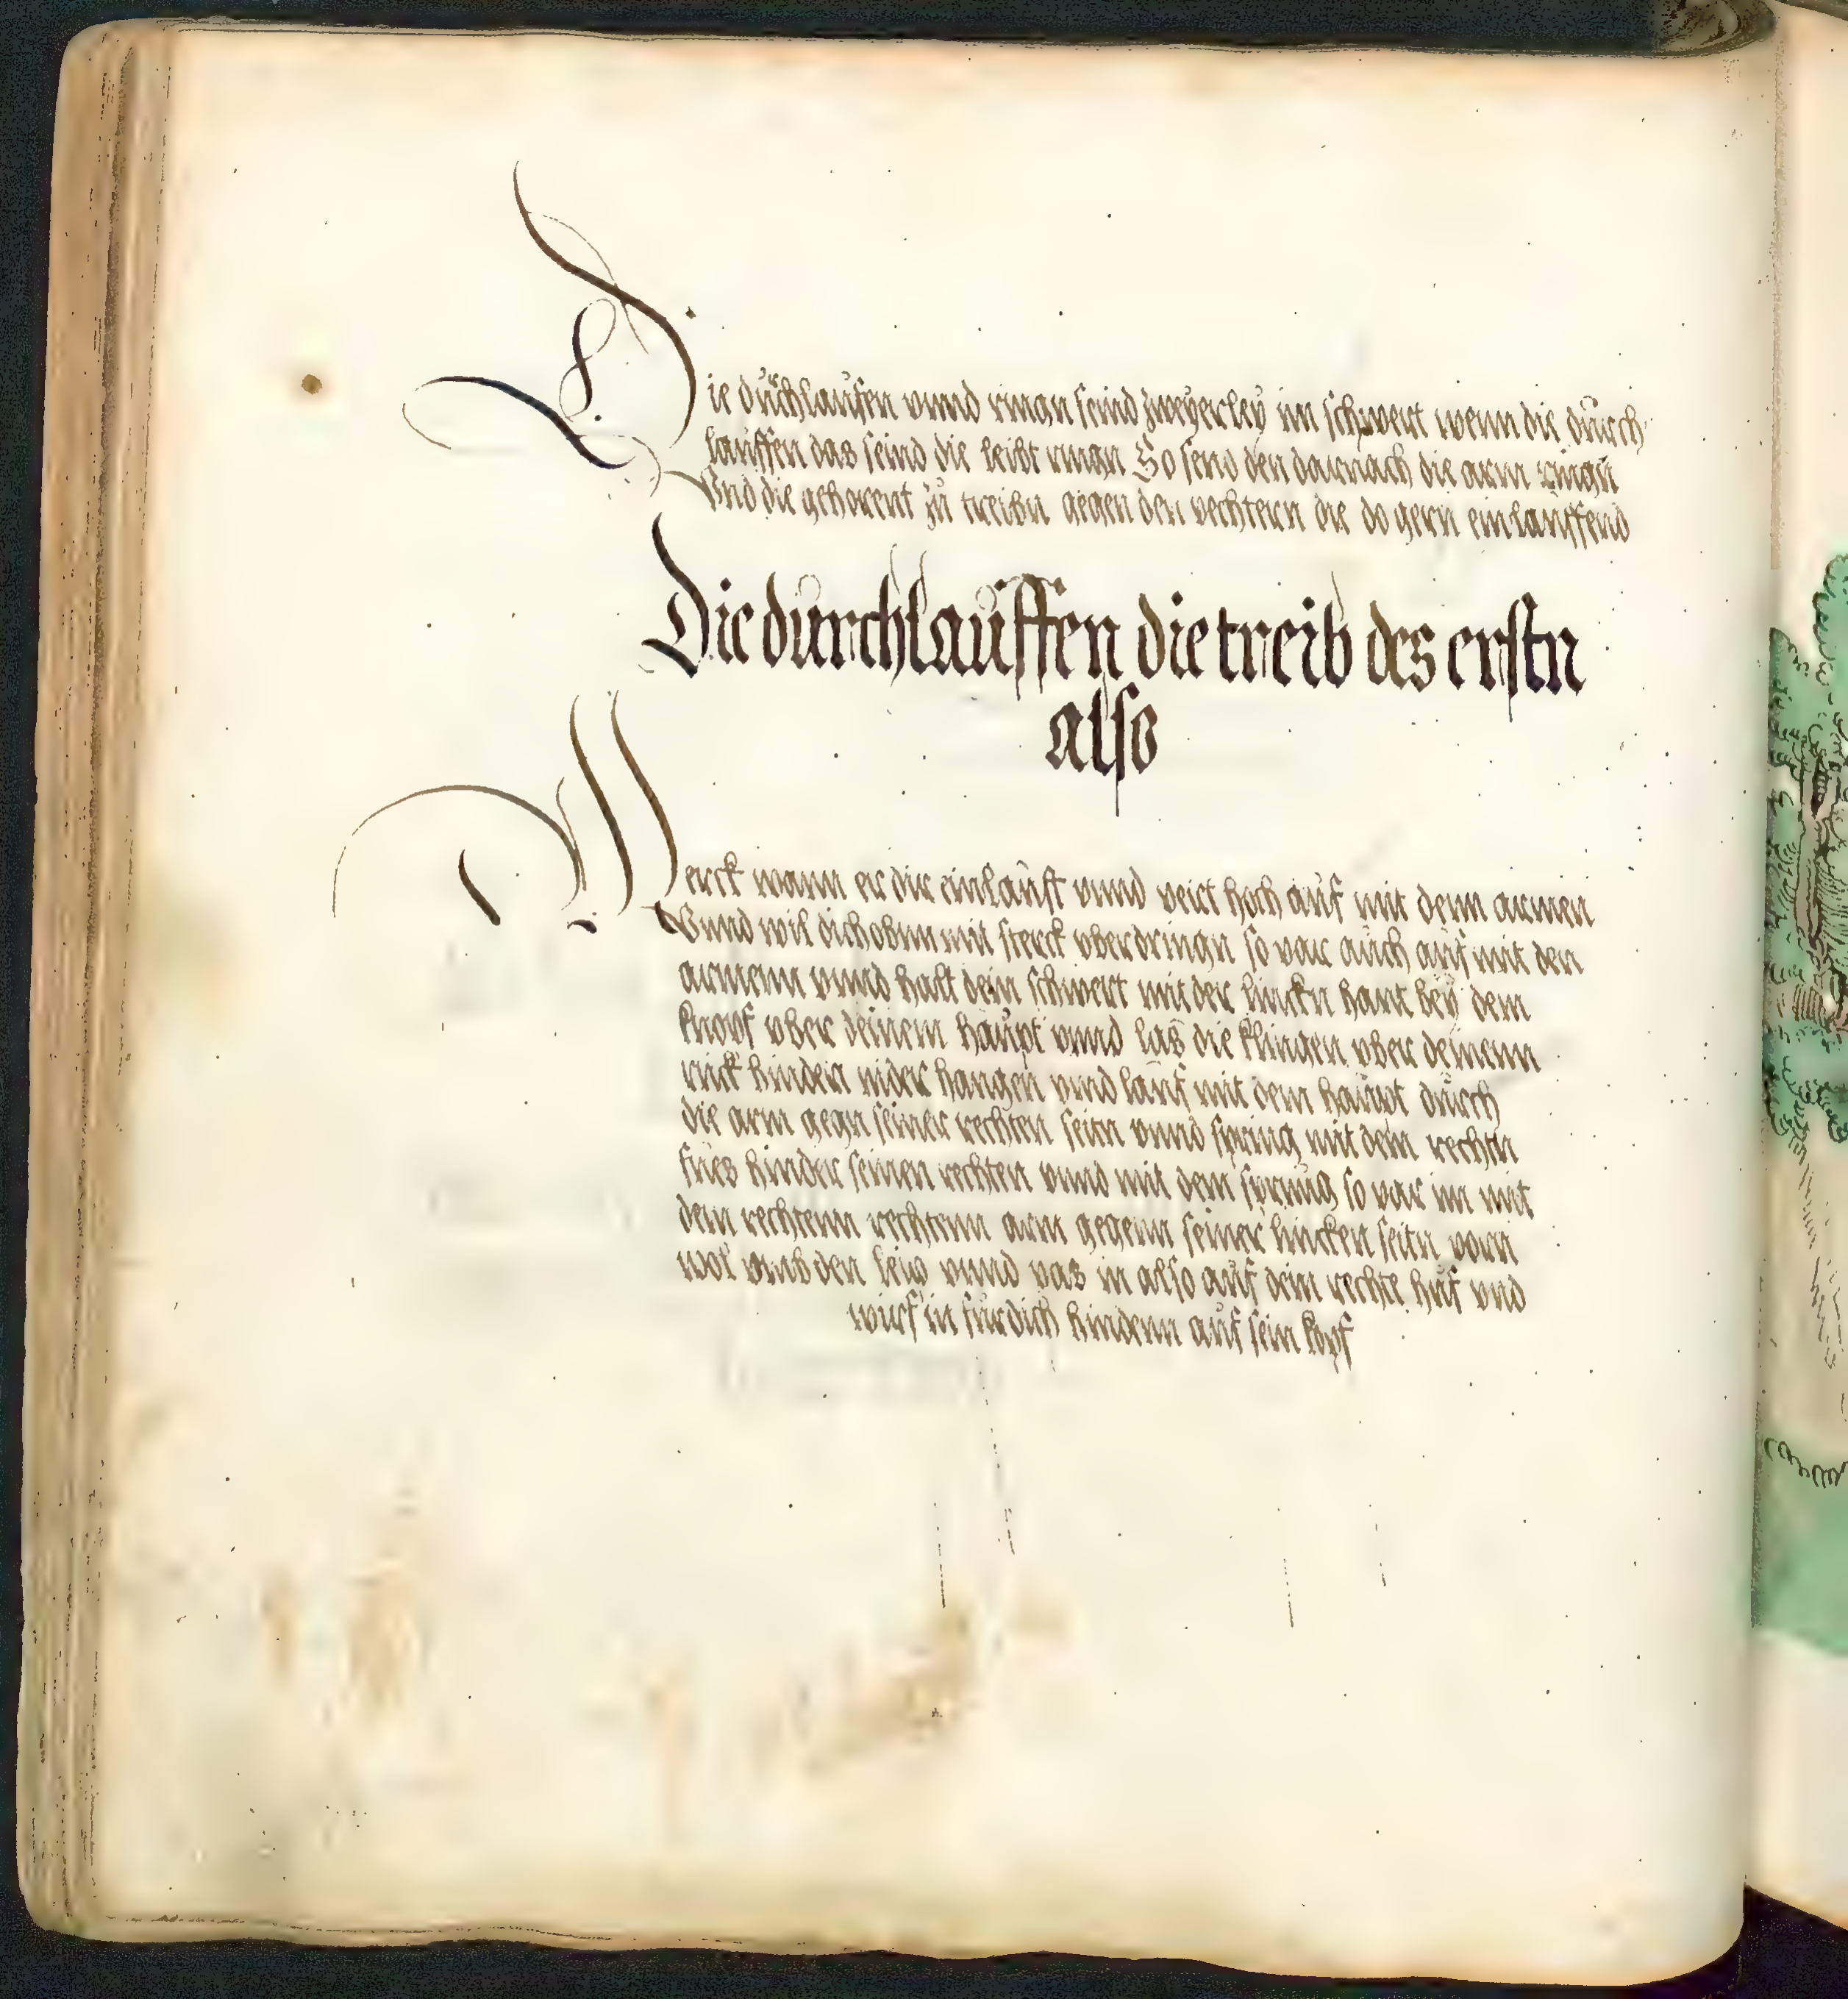 Die dürchlaufen vnnd ringn seind zweÿerleÿ im schwert wenn die dürch
lauffen das seind die leibt ringn So send den darnach die arm ringn
Vnd die gehorent zü treibn gegen den vechtern die do gern einlauffend
Die dürchlaüffen die treib des erstn
also
Merck wann er dir einlaüft vnnd vert hoch aüf mit denn armen
Vnnd wil dich obnn mit sterck vberdringn so var aüch aüf mit den
armenn vnnd halt dein schwert mit der linckn hant beÿ dem
knopf vber deinem haüpt vnnd las die klingen vber deinenn
rück hinden nider hangen vnd lauf mit dem haüpt dürch
die arm gegn seiner rechten seitn vnnd spring mit dem rechtn
fües hinder seinen rechten vnnd mit dem sprüng so var im mit
dem rechtenn rechtenn arm gegenn seiner lincken seitn vorn
wol vmb den leib vnnd vas in also aüf dein rechte hüf vnd
würf in für dich hindenn aüf sein kopf